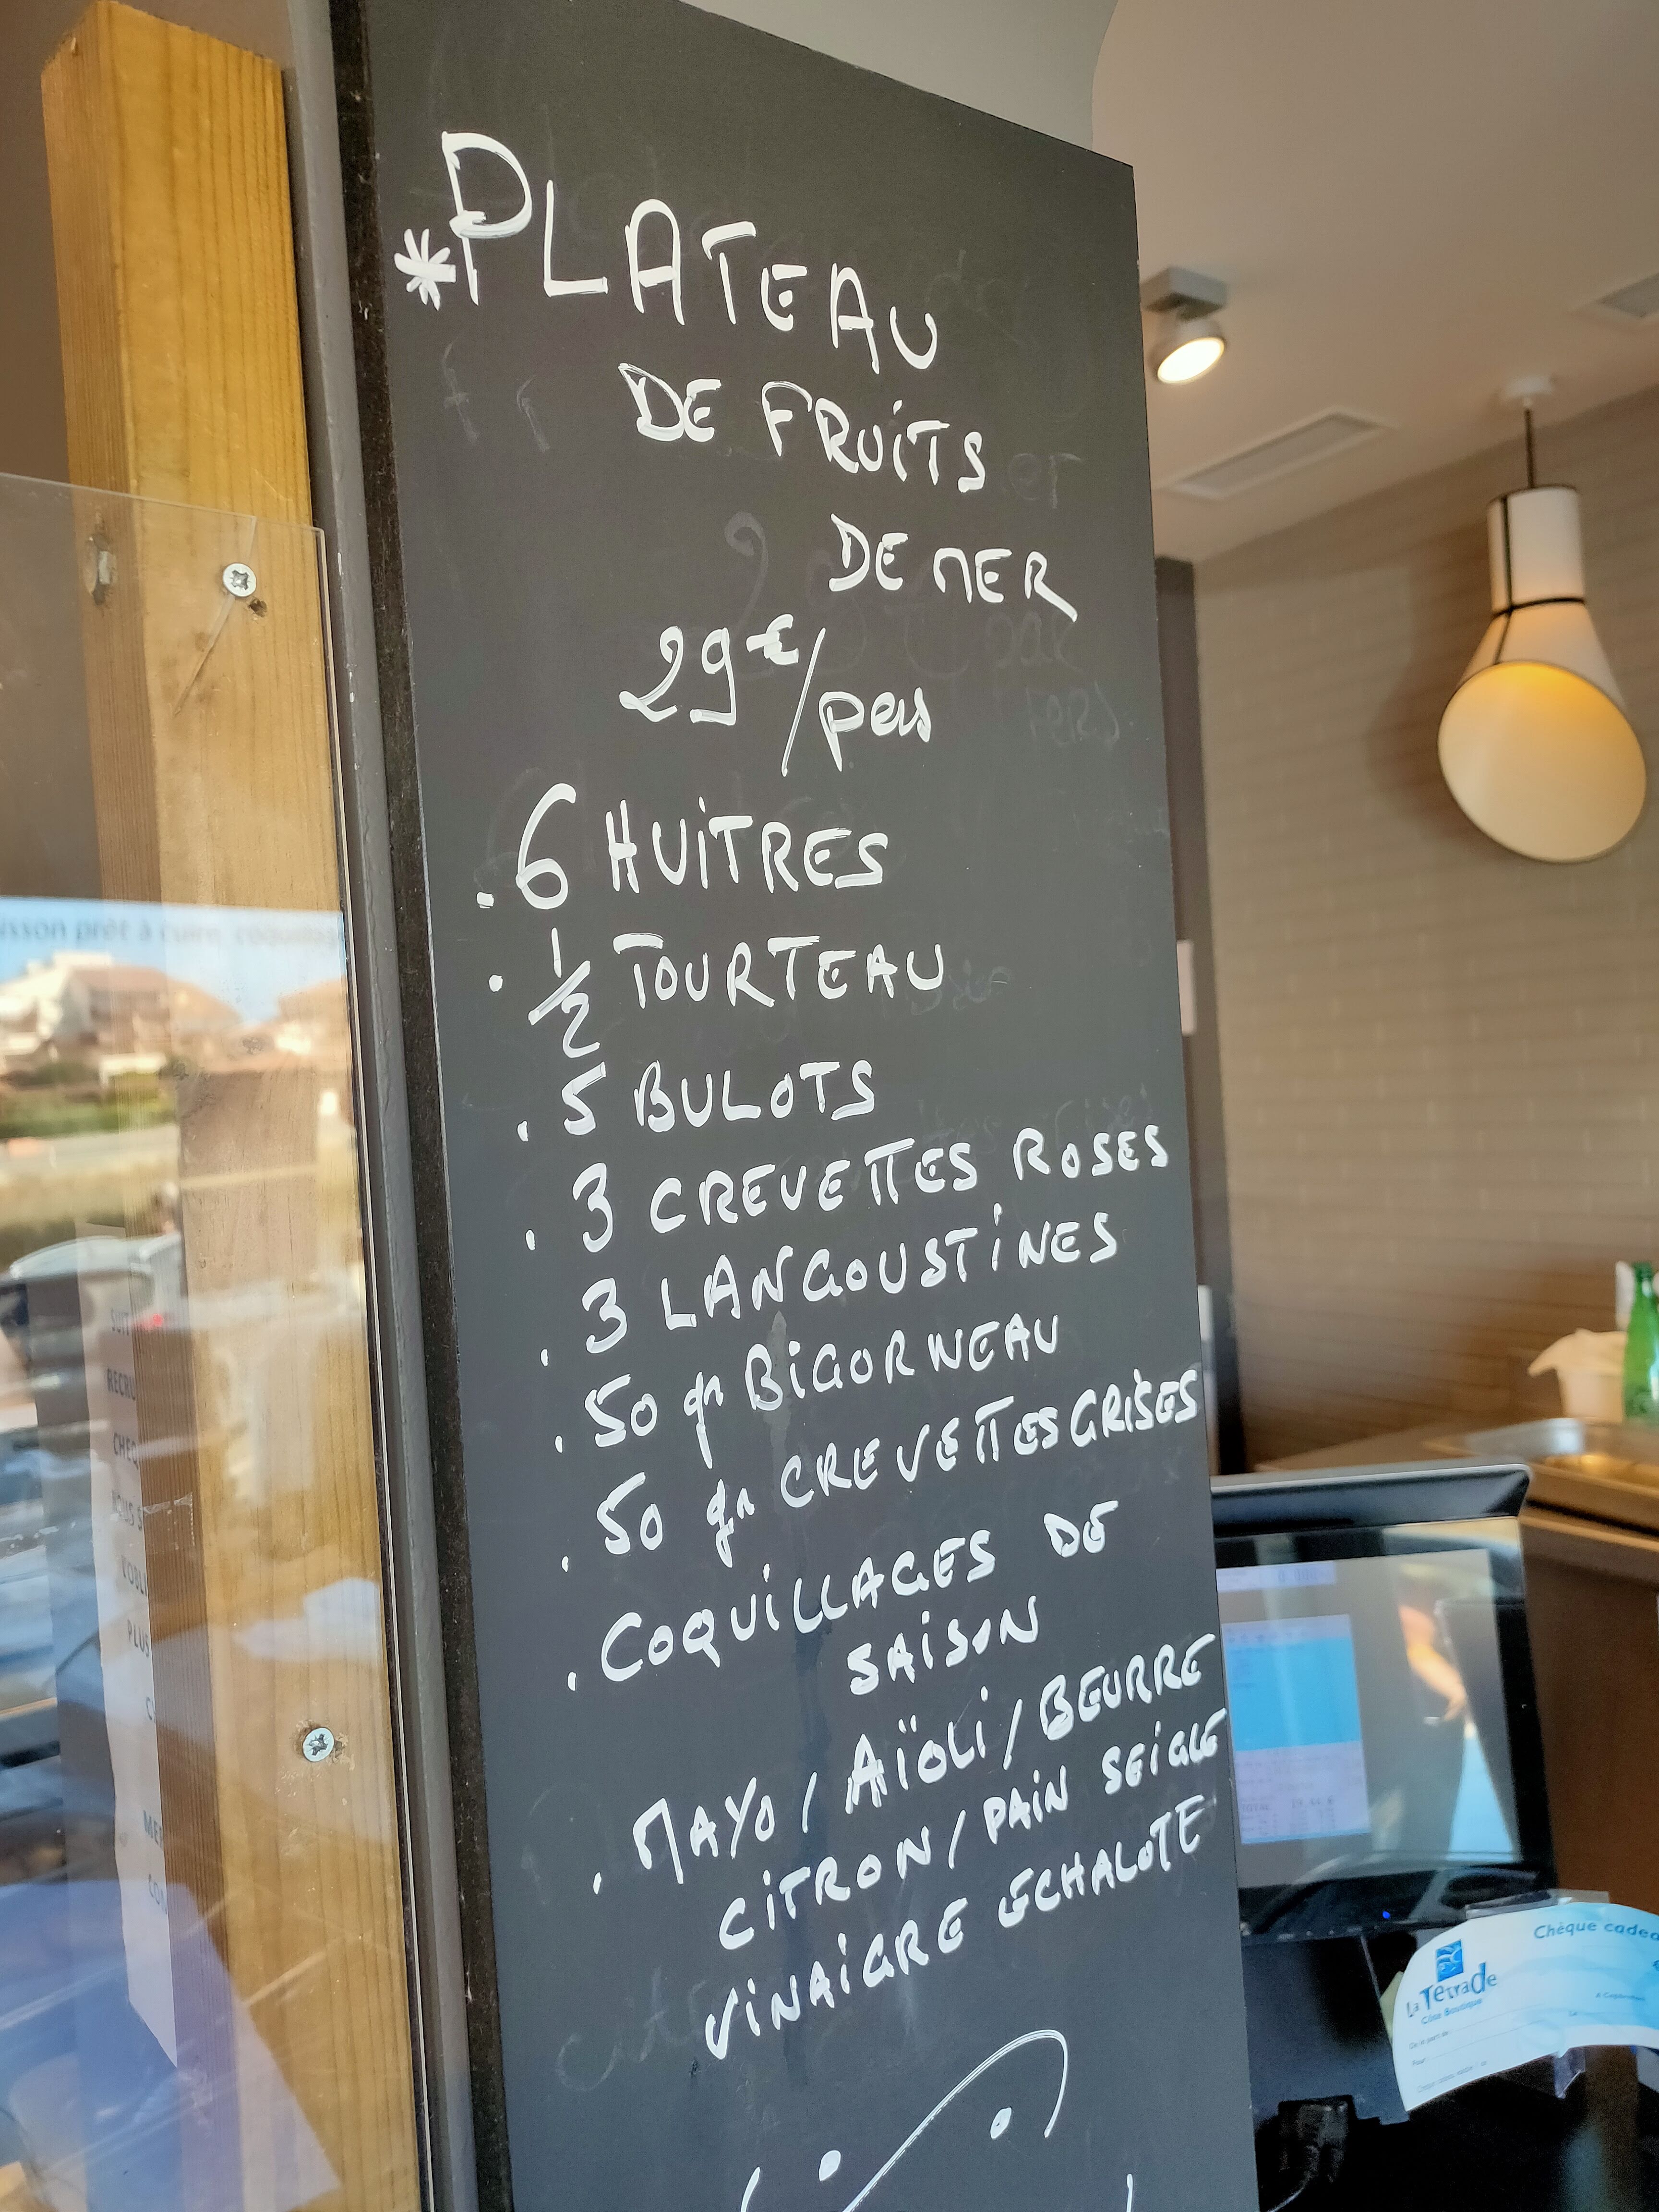 *PLATEAU
DE FRUITS
DE MER
29€/pers
.6 HUiTRES
. 1/2 TOURTEAU
. 5 BULOTS
. 3 CREVETTES ROSES
. 3 LANGOUSTiNES
. 50 gr BiGORNEAU
. 50 gr CREVETTES GRiSES
. COQUiLLAGES DE
SAiSON
. MAYO / AÏOLi / BEURRE
CiTRON / PAiN SEiGLE
ViNAiGRE ECHALOTE
prêt à cuire, coquillag
RECRU
PLUS
Chèque cadea
La Terrade
Côté Boutique
De la part de
Pour